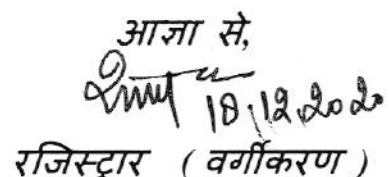 आज्ञा से,
18.12.2020
रजिस्ट्रार ( वर्गीकरण )